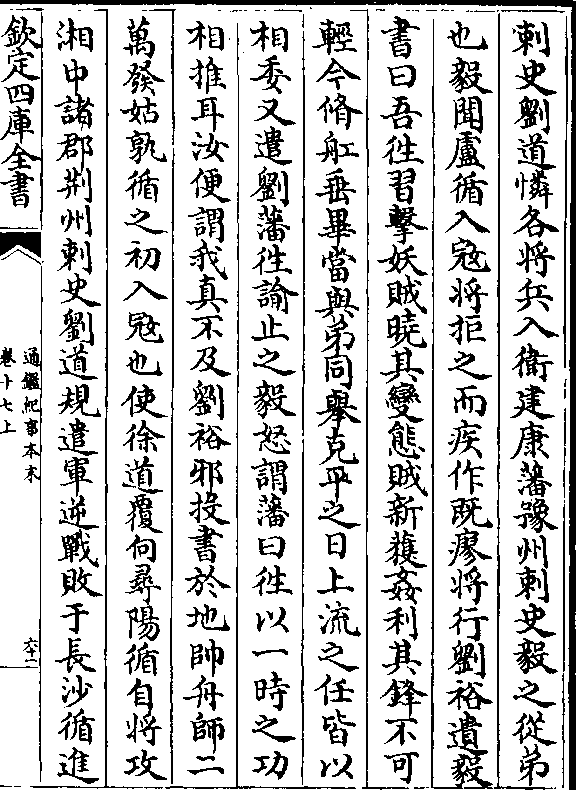 刺史劉道憐各將兵入衛建康藩豫州刺史毅之從弟
也毅聞盧循入寇將拒之而疾作既瘳將行劉裕遺毅
書曰吾徃習擊妖賊曉其變態賊新獲姦利其鋒不可
輕今脩舡垂畢當與弟同舉克平之日上流之任皆以
相委又遣劉藩徃諭止之毅怒謂藩曰徃以一時之功
相推耳汝便謂我真不及劉裕邪投書於地帥舟師二
萬發姑孰循之初入寇也使徐道覆向尋陽循自將攻
湘中諸郡荆州刺史劉道規遣軍逆戰敗于長沙循進
欽定四庫全書
通鑑紀事本末
卷十七上
六十二